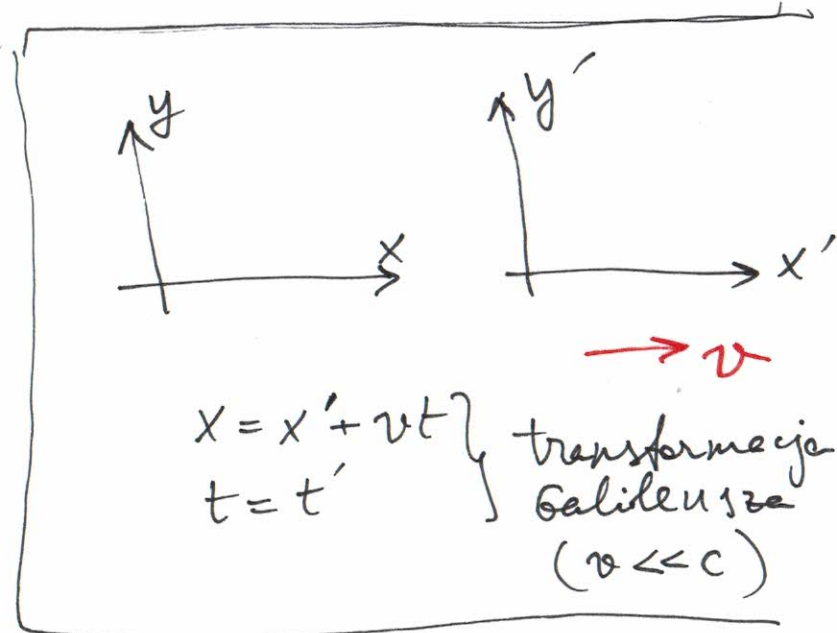 y
y′
x
x′
v
x = x′ + vt
t = t′
transformacja
Galileusza
(v << c)